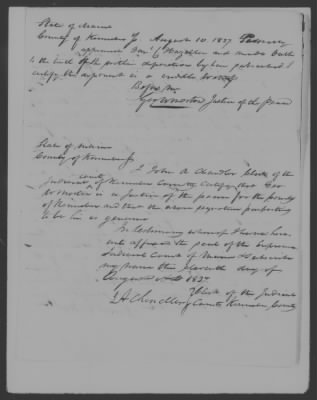 State of Maine
County of Kennebec ss August 10 1837 Personally
appeared Benj. C and made Oath
to the truth of the within deposition by him subscribed I
certify the deponent is a credible
Before Me
Geo W Morton Justice of the Peace
State of Maine
County of Kennebec ss
I John A Chandler Clerk of the
Judicial Courts of Kennebec County certify that Geo
W Morton is a Justice of the peace for the County
of Kennebec and that the above signature purporting
to be his is genuine
In testimony whereof I have here
unto affixed the seal of the Supreme
Judicial Court of Maine & subscribe
my name this eleventh day of
August AD 1837
J A Chandler Clerk of the Judicial
Courts Kennebec County